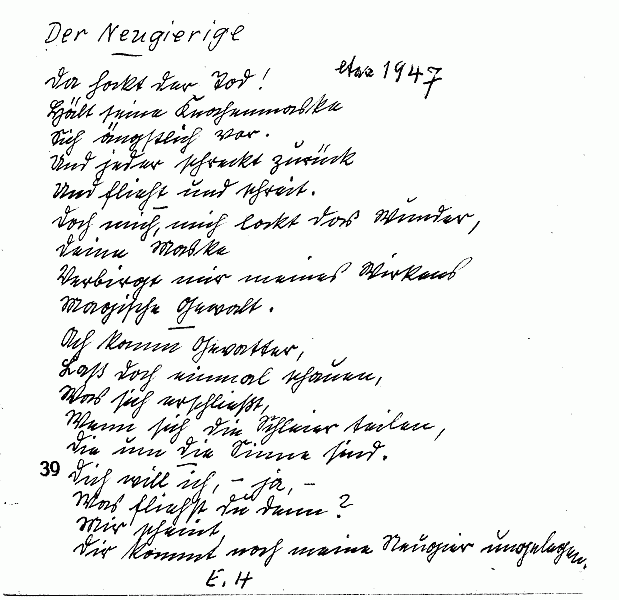 Der Neugierige
etwa 1947
Da hockt der Tod!
Hält seine Knochenmaske
Sich ängstlich vor.
Und jeder schreckt zurück
Und flieht und schreit.
Doch mich, mich lockt das Wunder,
Deine Maske
Verbirgt mir meines Wirkens
Magische Gewalt.
Ach komm Gevatter,
Laß doch einmal schauen,
Was sich erschließt,
Wenn sich die Schleier teilen,
Die um die Sinne sind.
39
Dich will ich, – ja, –
Was fliehst du denn?
Mir scheint,
Dir kommt noch meine Neugier ungelegen.
E. H